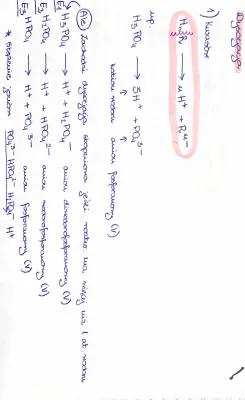 Dysocjacja
1) Kwasów
HₙR → n H⁺ + Rⁿ⁻
np.
H₃PO₄ → 3H⁺ + PO₄³⁻
kation wodoru anion fosforanowy (V)
Ale Zachodzi dysocjacja stopniowa jeśli kwas ma więcej niż 1 at. wodoru
E₁ H₃PO₄ → H⁺ + H₂PO₄⁻ anion diwodorofosforanowy (V)
E₂ H₂PO₄⁻ → H⁺ + HPO₄²⁻ anion wodorofosforanowy (V)
E₃ HPO₄²⁻ → H⁺ + PO₄³⁻ anion fosforanowy (V)
* stężenie jonów PO₄³⁻ HPO₄²⁻ H₂PO₄⁻ H⁺